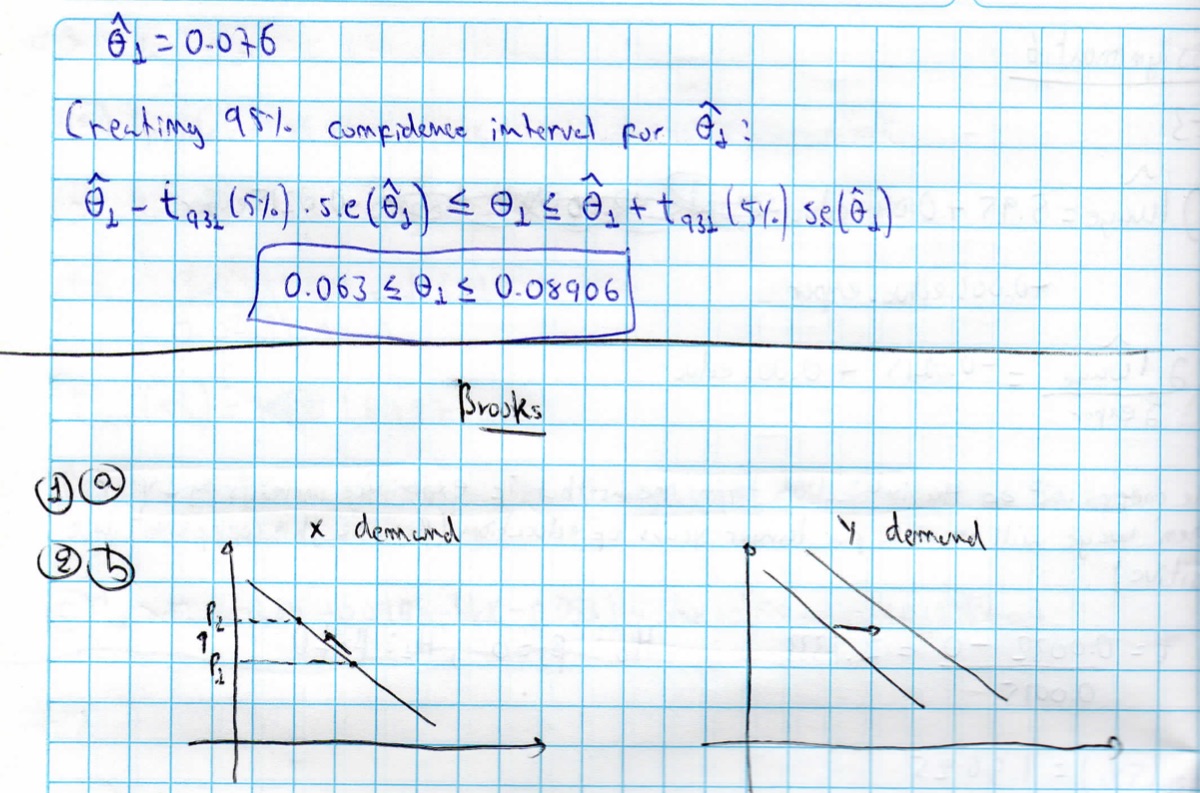 θ̂₁ = 0.076
Creating 95% comfidence interval for θ̂₁:
θ̂₁ - t₉₃₁ (5%) . s.e (θ̂₁) ≤ θ₁ ≤ θ̂₁ + t₉₃₁ (5%) se(θ̂₁)
0.063 ≤ θ₁ ≤ 0.08906
Brooks
1 a
2 b
X demand
Y demand
P₂
P₁